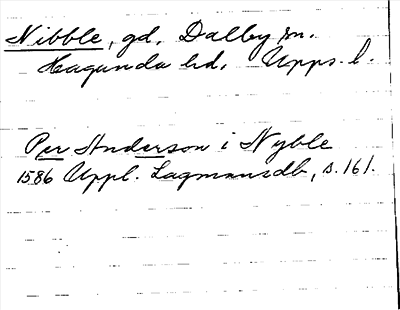 Nibble, gd, Dalby sn.
Hagunda hd, Upps. l.
Per Anderson i Nyble
1586 Uppl. Lagmansdb, s. 161.